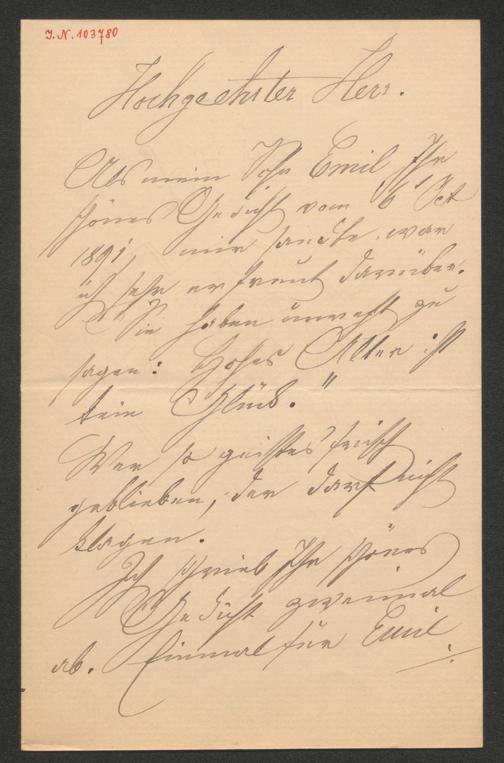 I.N. 103780
Hochgeehrter Herr.
Als mein Sohn Emil Ihr
schönes Gedicht vom 6 Oct
1891, mir sandte, war
ich sehr erfreut darüber.
Sie haben unrecht zu
sagen: Hohes Alter ist
kein Glück."
Wer so geistesfrisch
geblieben, der darf nicht
klagen.
Ich schrieb Ihr schönes
Gedicht zweimal
ab. Einmal für Emil